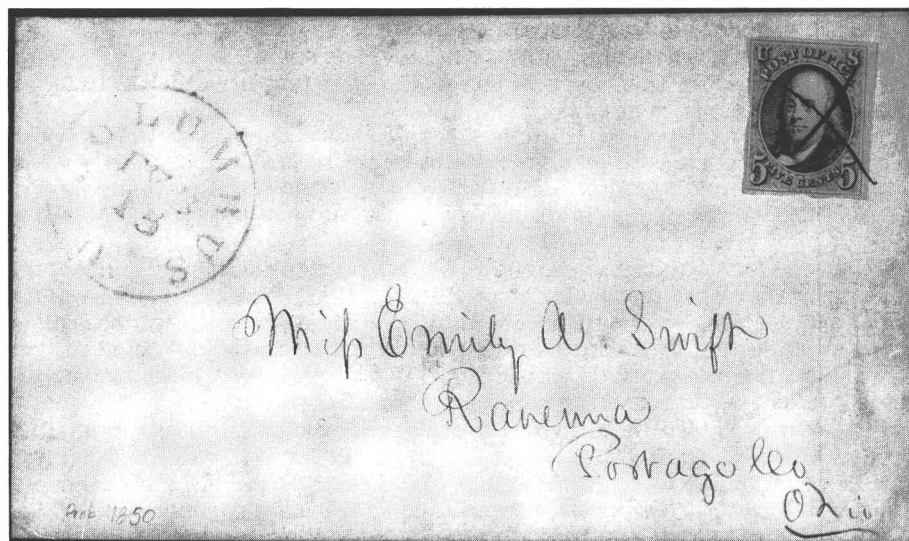 U S
POST OFFICE
5 FIVE CENTS 5
COLUMBUS
Miss Emily A. Swift
Ravenna
Portage Co
Ohio
Prob 1850